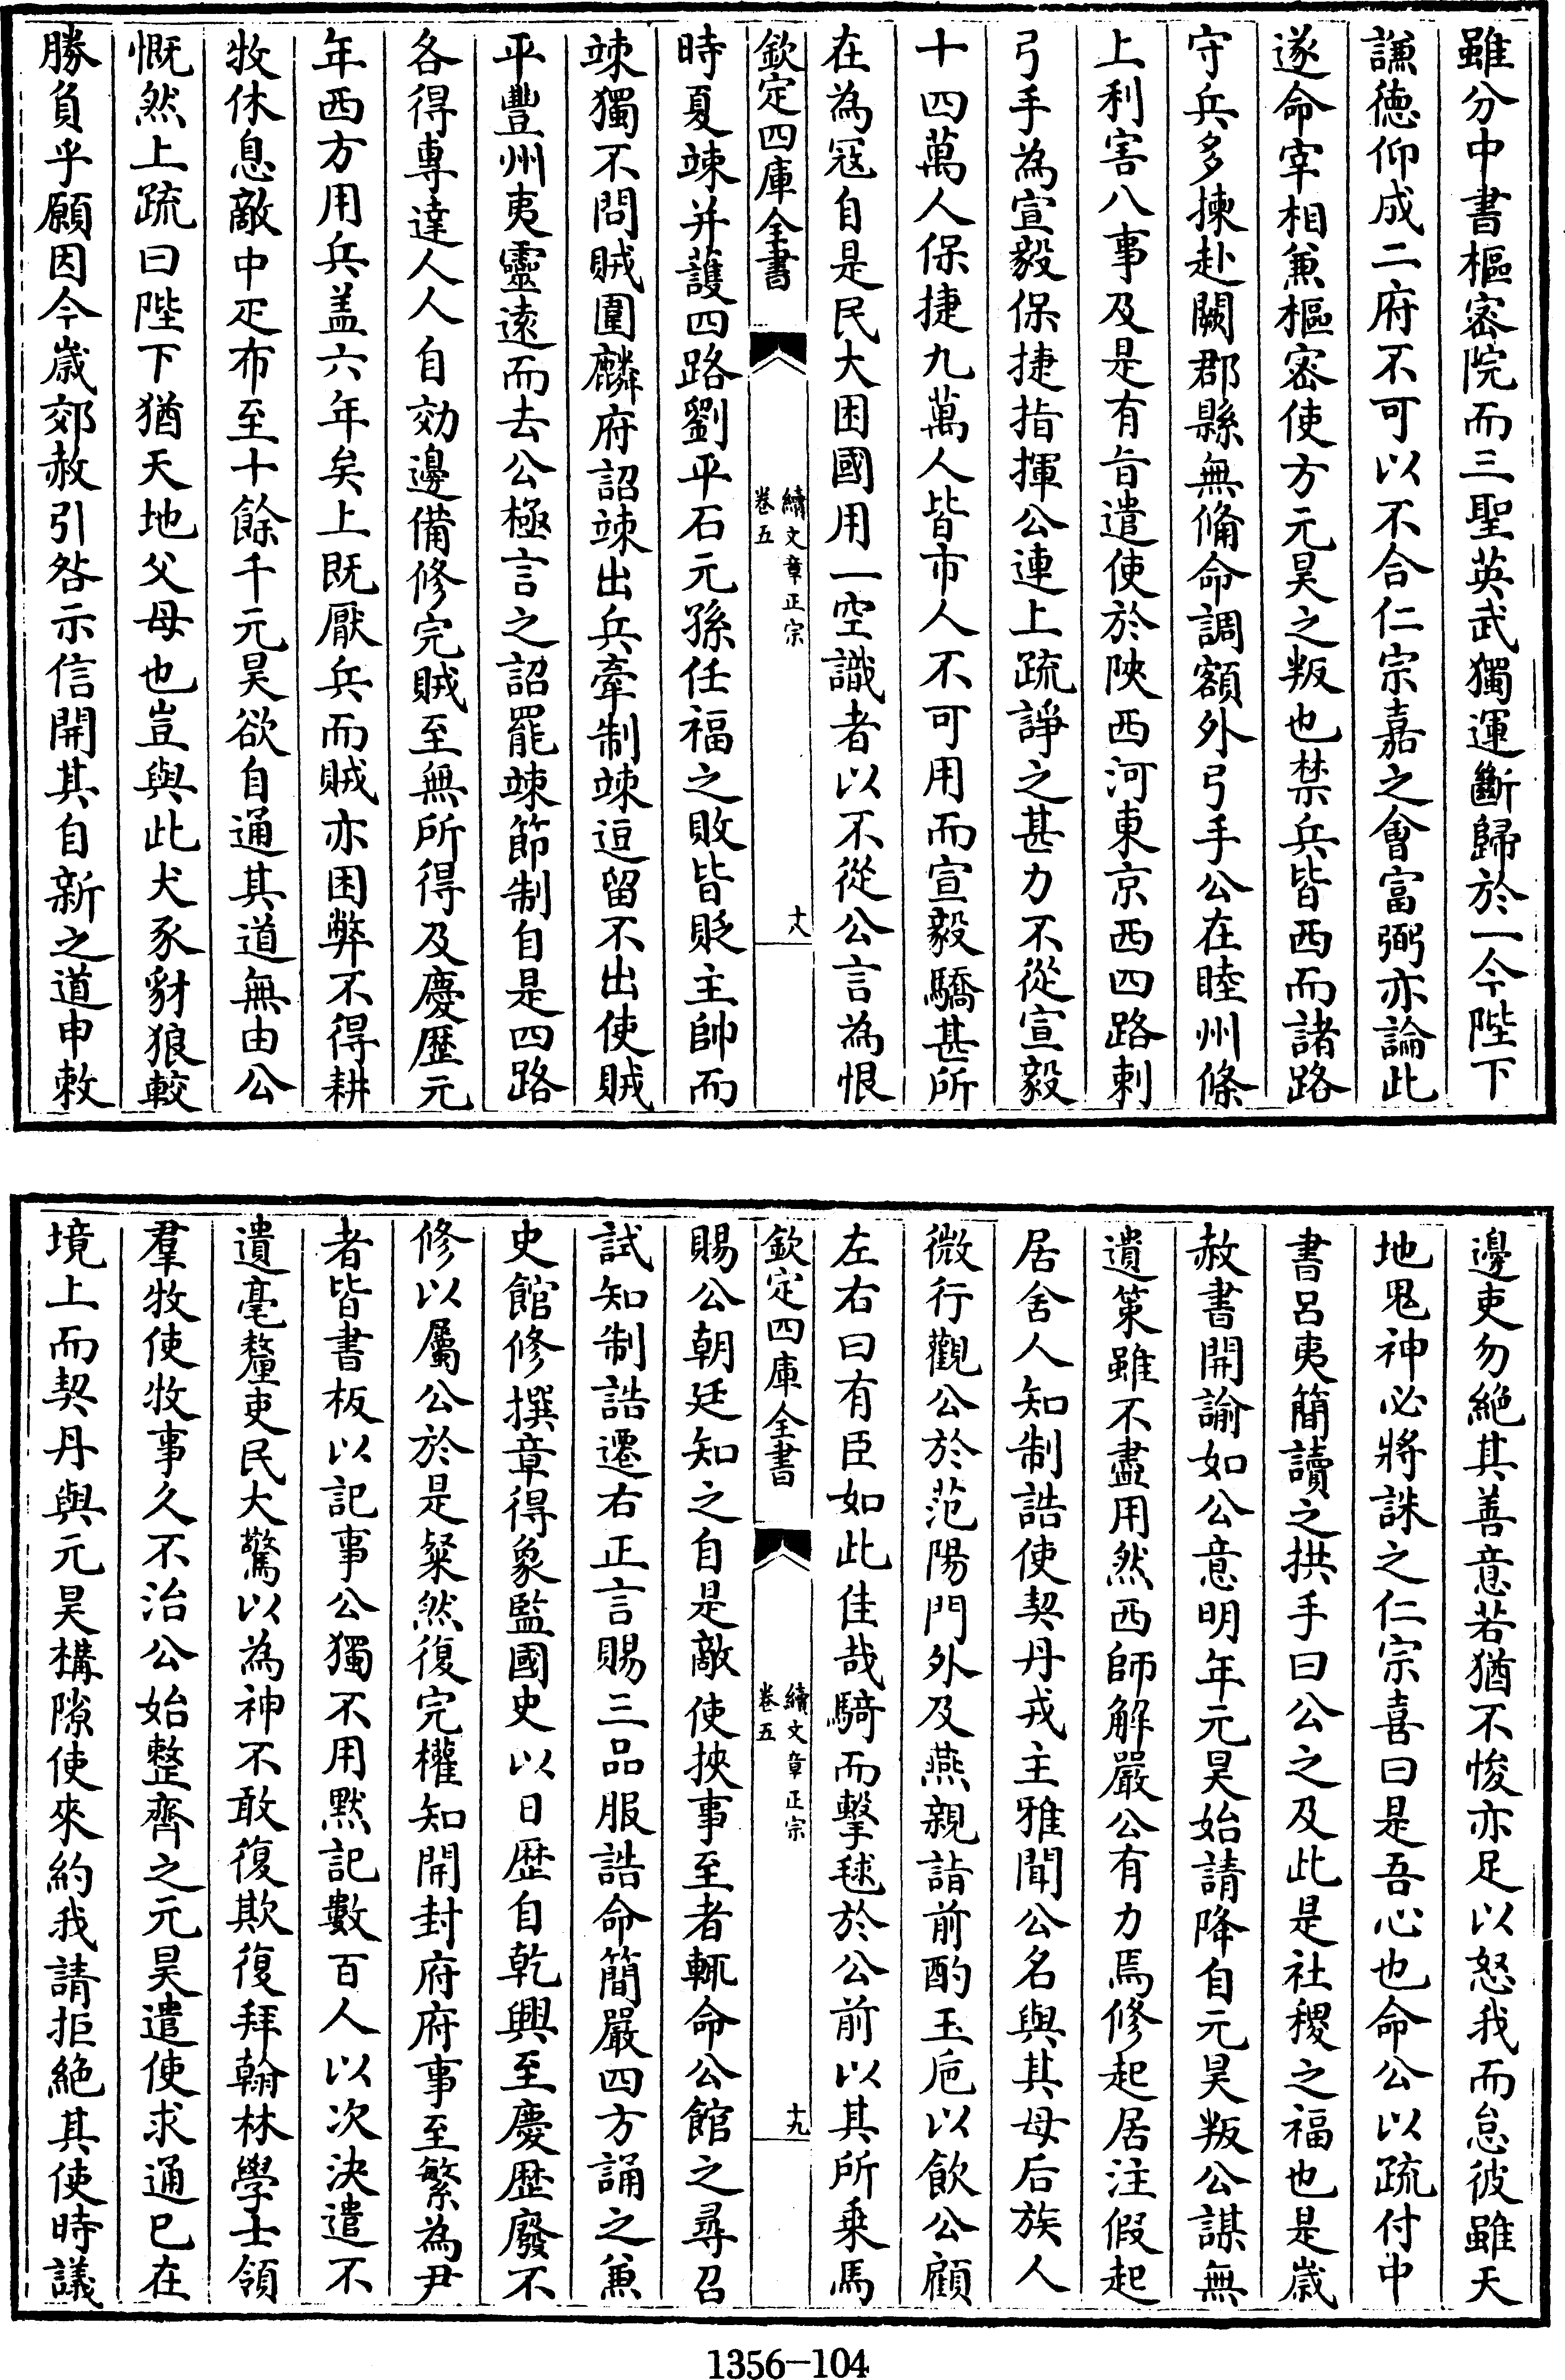 雖分中書樞密院而三聖英武獨運斷歸於一今陛下
謙徳仰成二府不可以不合仁宗嘉之會富弼亦論此
遂命宰相兼樞密使方元昊之叛也禁兵皆西而諸路
守兵多揀赴闕郡縣無備命調額外弓手公在睦州條
上利害八事及是有旨遣使於陜西河東京西四路刺
弓手為宣毅保捷指揮公連上疏諍之甚力不從宣毅
十四萬人保捷九萬人皆市人不可用而宣毅驕甚所
在為寇自是民大困國用一空識者以不從公言為恨
欽定四庫全書
續文章正宗
卷五
十八
時夏竦并護四路劉平石元孫任福之敗皆貶主帥而
竦獨不問賊圍麟府詔竦出兵牽制竦逗留不出使賊
平豐州夷靈遠而去公極言之詔罷竦節制自是四路
各得專達人人自効邊備修完賊至無所得及慶歴元
年西方用兵盖六年矣上既厭兵而賊亦困弊不得耕
牧休息敵中疋布至十餘千元昊欲自通其道無由公
慨然上疏曰陛下猶天地父母也豈與此犬豕豺狼較
勝負乎願因今歳郊赦引咎示信開其自新之道申敕
邊吏勿絶其善意若猶不悛亦足以怒我而怠彼雖天
地鬼神必將誅之仁宗喜曰是吾心也命公以疏付中
書呂夷簡讀之拱手曰公之及此是社稷之福也是歳
赦書開諭如公意明年元昊始請降自元昊叛公謀無
遺策雖不盡用然西師解嚴公有力焉修起居注假起
居舍人知制誥使契丹戎主雅聞公名與其母后族人
微行觀公於范陽門外及燕親詣前酌玉巵以飲公顧
左右曰有臣如此佳哉騎而擊毬於公前以其所乗馬
欽定四庫全書
續文章正宗
卷五
十九
賜公朝廷知之自是敵使挾事至者輒命公館之尋召
試知制誥遷右正言賜三品服誥命簡嚴四方誦之兼
史館修撰章得象監國史以日歴自乾興至慶歴廢不
修以屬公於是粲然復完權知開封府府事至繁為尹
者皆書板以記事公獨不用黙記數百人以次決遣不
遺毫釐吏民大驚以為神不敢復欺復拜翰林學士領
羣牧使牧事久不治公始整齊之元昊遣使求通已在
境上而契丹與元昊構隙使來約我請拒絶其使時議
1356-104